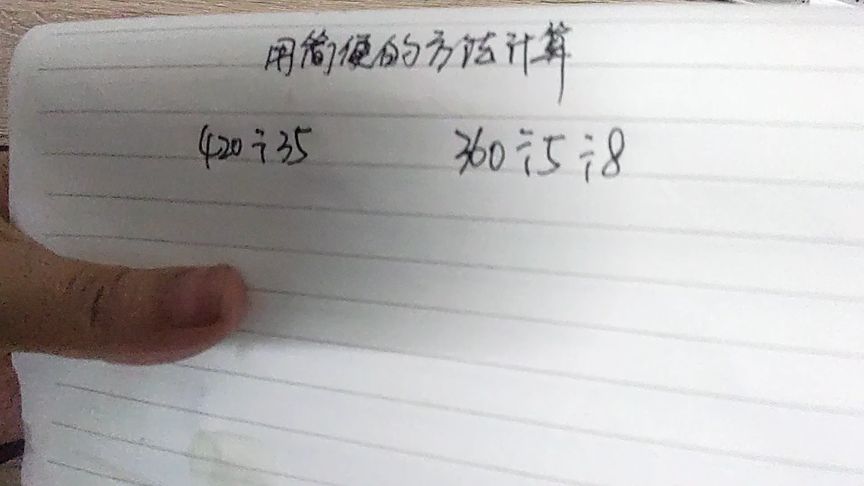 用简便的方法计算
420÷35 360÷5÷8